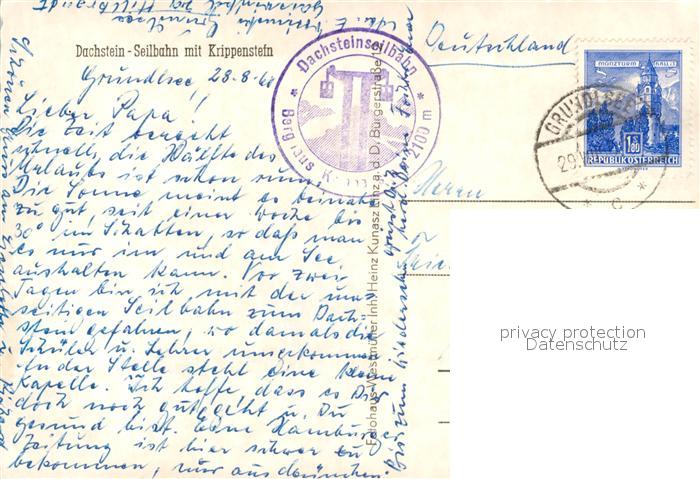 Dachstein - Seilbahn mit Krippenstein
Grundlsee 28.8.
Lieber Papa!!
Die Zeit vergeht
schnell, die Hälfte des
Urlaubs ist schon rum.
Die Sonne meint es beinahe
zu gut, seit einer Woche bis
30° im Schatten, so daß man
es nur im und am See
aushalten kann. Vor zwei
Tagen bin ich mit der
seitigen Seilbahn zum Dach-
stein gefahren, wo damals die
Schüler u. Lehrer umgekommen
An der Stelle steht eine kleine
Kapelle. Ich hoffe dass es Dir
doch noch gut geht u. Du
gesund bist. Eine Hamburger
Zeitung ist hier schwer zu
bekommen, nur aus München.
Bis zum Wiedersehn
Deutschland
Herrn
* Dachsteinseilbahn *
2100 m
Berg
Fotohaus Westmüller Inh. Heinz Kunasz, Linz a. d. D. Bürgerstraße 15
MÜNZTURM HALL i. T.
1.80
REPUBLIK ÖSTERREICH
GRUNDLSEE
29.
* c *
privacy protection
Datenschutz